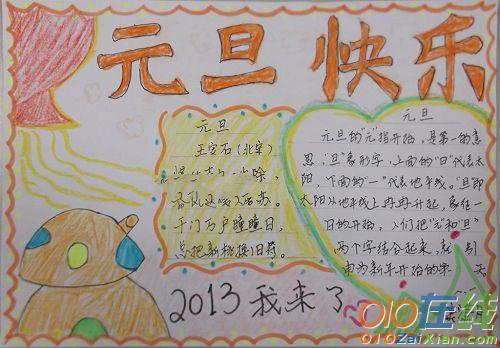 元旦快乐
元旦
王安石(北宋)
入屠苏。
千门万户瞳瞳日,
总把新桃换旧符。
元旦
元旦的“元”指开始,是第一的意
思;“旦”象形字,上面的“日”代表太
阳,下面的“一”代表地平线。“旦”即
太阳从地平线上冉冉升起,象征一
日的开始。人们把“元”和“旦”
两个字结合起来,就引
申为新年开始的第一天
2013 我来了
010在线
010ZaiXian.com